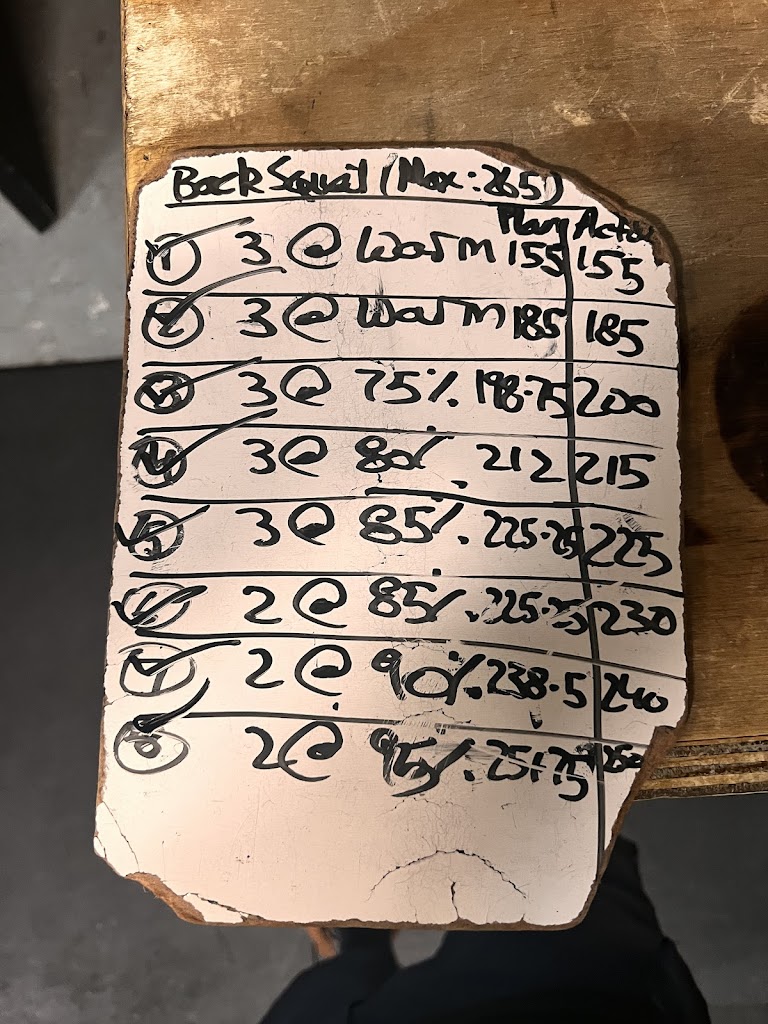 Back Squat (Max: 265)
Plan Actual
1 3 @ Warm 155 155
2 3 @ Warm 185 185
3 3 @ 75% 198.75 200
4 3 @ 80% 212 215
5 3 @ 85% 225.25 225
6 2 @ 85% 225.25 230
7 2 @ 90% 238.5 240
8 2 @ 95% 251.75 250